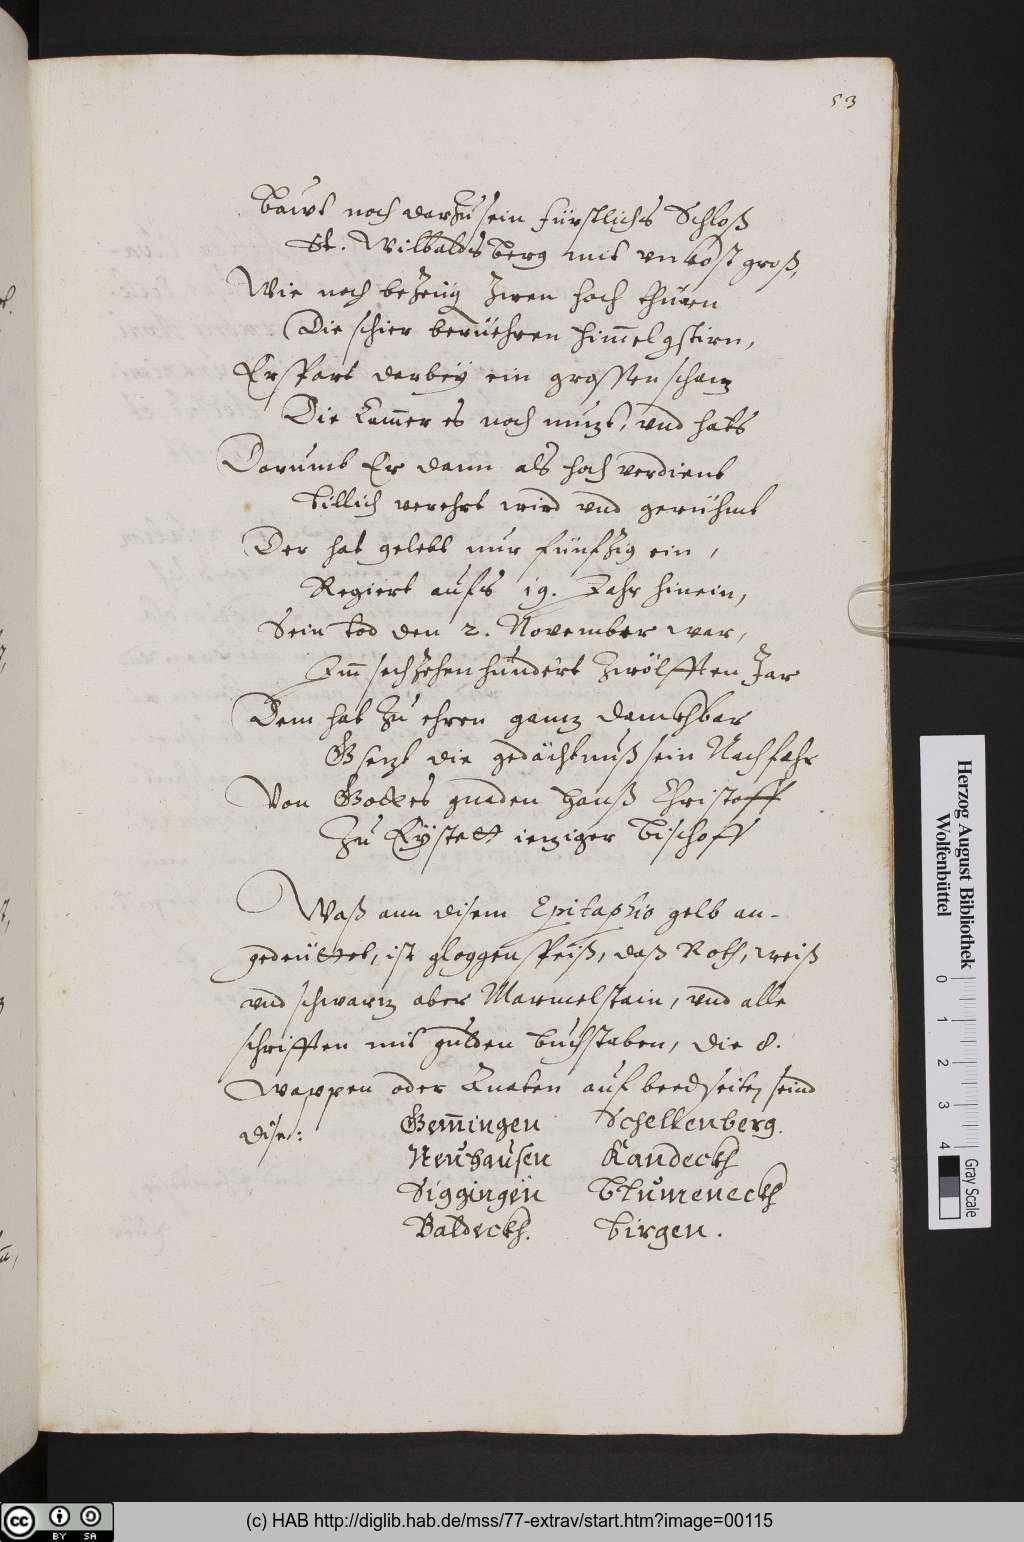 53
Bawt noch darzu sein fürstlichs Schloß
St. Wilbaldsberg mit vnkost groß,
Wie noch bezeug zwen hoch thüren
Die schier berüehren himelgstirn,
Erspart darbey ein grossen schaz
Die Camer es noch nuzt, vnd hats
Darumb Er dann als hoch verdient
Billich verehrt wird vnd gerühmt
Der hat gelebt nur fünfzig ein,
Regiert aufs 19. Jahr hinein,
Sein tod den 2. November war,
Im sechzehenhundert zwölfften Jar
Dem hat zu ehren ganz danckhbar
Gsezt die gedächtnuß sein Nachfahr
Von Gottes gnaden Hanß Christoff
Zu Eystett ieziger Bischoff
Waß ann disem Epitaphio gelb an-
gedeüttet, ist gloggenspeiß, daß Roth, weiß
vnd schwarz aber Marmelstain, vnd alle
schrifften mit gulden buchstaben, die 8.
Wappen oder Anaten auf beed seiten seind
dise:
Gemingen Schellenberg.
Neuhausen Kandeckh
Siggingen Blumeneckh
Baldeckh. Birgen.
Herzog August Bibliothek
Wolfenbüttel
0 1 2 3 4
Gray Scale
cc BY SA
(c) HAB http://diglib.hab.de/mss/77-extrav/start.htm?image=00115